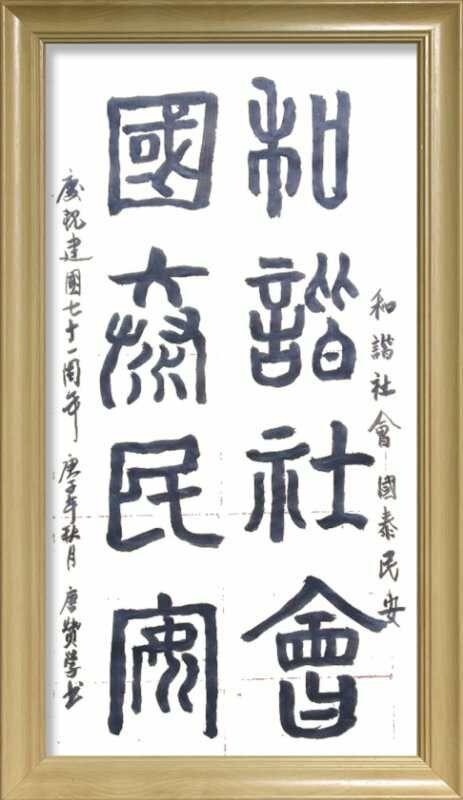 和諧社會國泰民安
和諧社會
國泰民安
慶祝建國七十一周年 庚子年秋月 唐贊學书